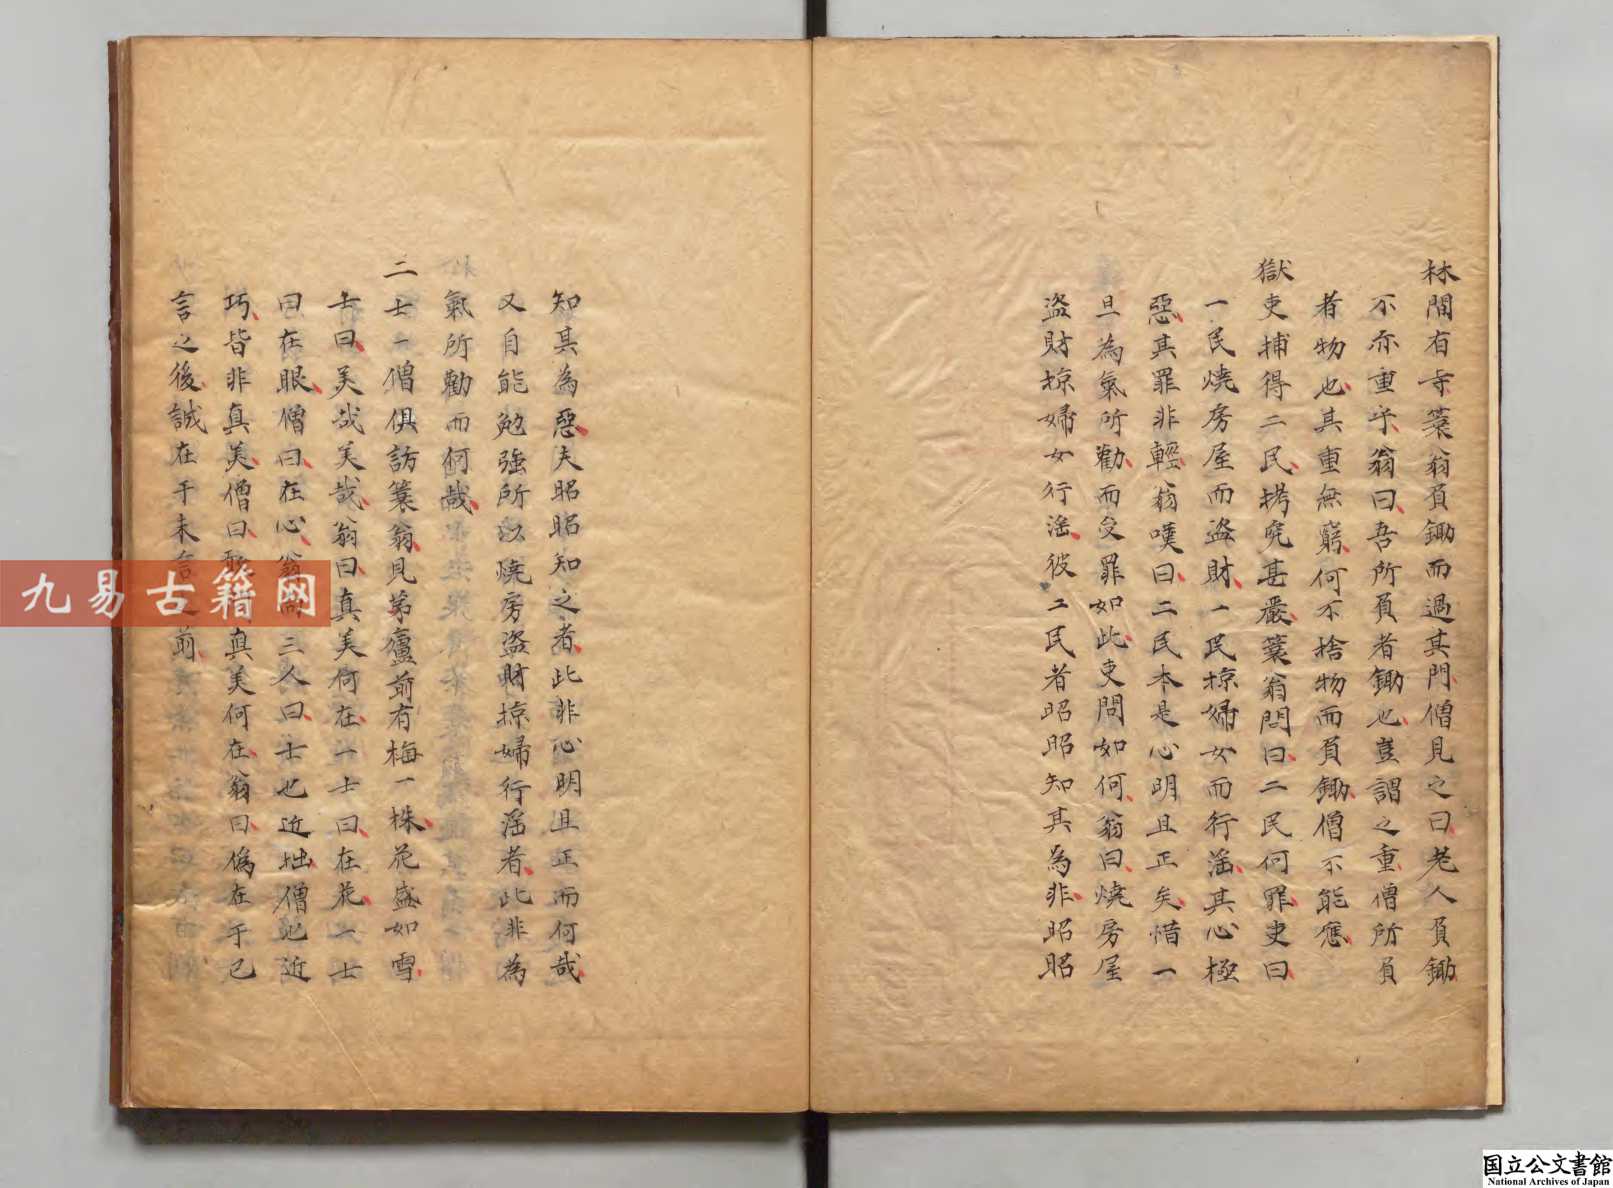 林間有寺蓑翁負鋤而過其門僧見之曰老人負鋤
不亦重乎翁曰吾所負者鋤也豈謂之重僧所負
者物也其重無窮何不捨物而負鋤僧不能應
獄吏捕得二民拷究甚嚴蓑翁問曰二民何罪吏曰
一民燒房屋而盜財一民掠婦女而行淫其心極
惡其罪非輕翁嘆曰二民本是心明且正矣惜一
旦為氣所勸而受罪如此吏問如何翁曰燒房屋
盜財掠婦女行淫彼二民者昭昭知其為非昭昭
知其為惡夫昭昭知之者此非心明且正而何哉
又自能勉強所以燒房盜財掠婦行淫者此非為
氣所勸而何哉
二士一僧俱訪蓑翁見茅廬前有梅一株花盛如雪
士曰美哉美哉翁曰真美何在一士曰在花一士
曰在眼僧曰在心翁三人曰士也近拙僧也近
巧皆非真美僧曰真美何在翁曰偽在于已
言之後誠在于未言之前
九易古籍网
国立公文書館
National Archives of Japan